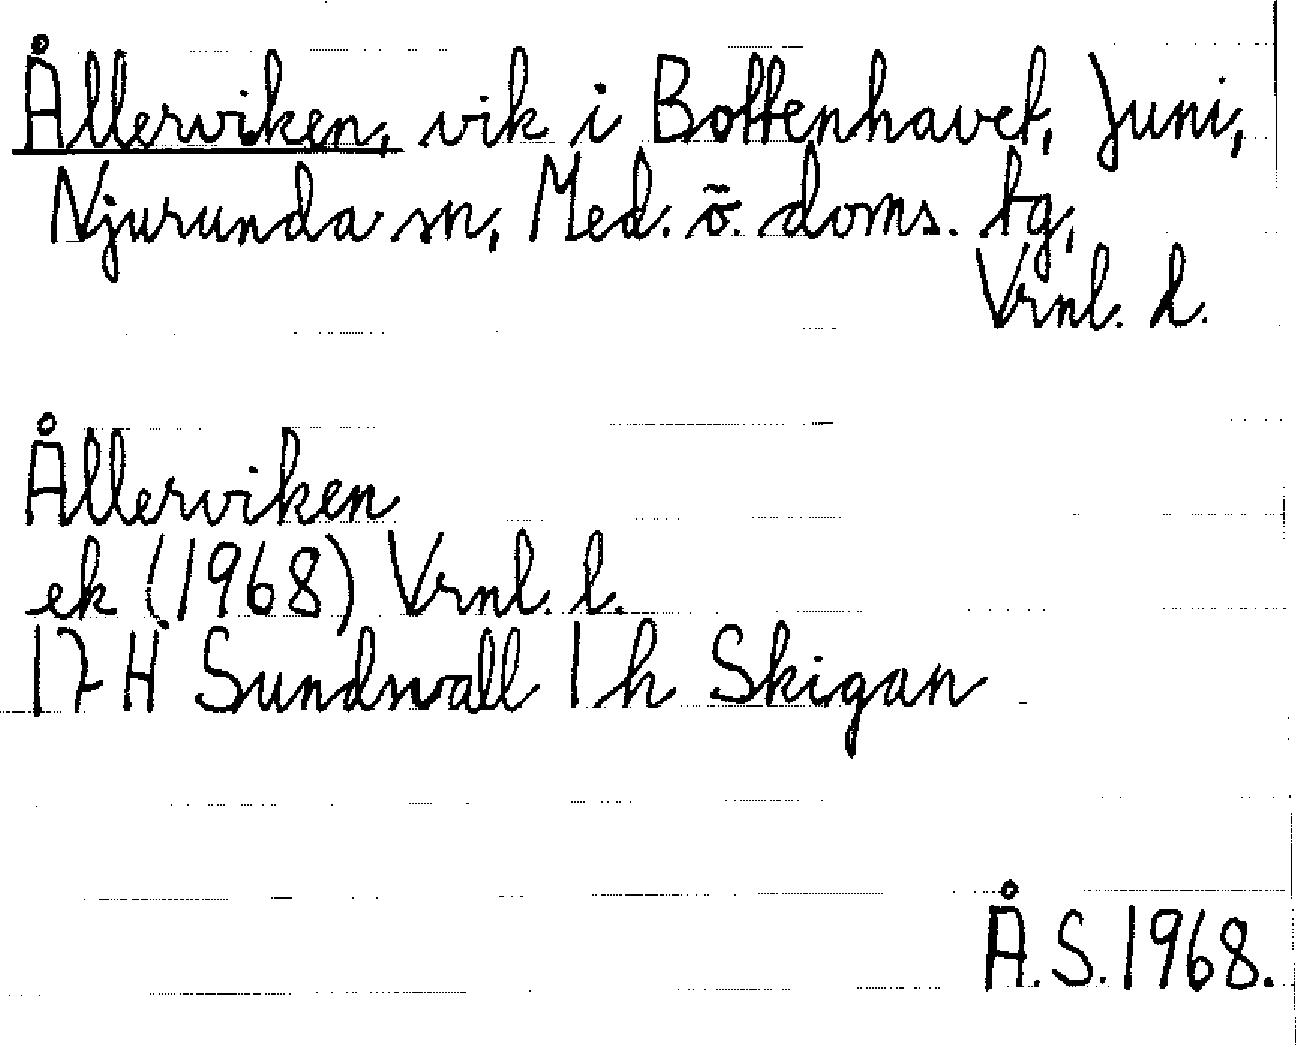 Ållerviken, vik i Bottenhavet, Juni,
Njurunda sn, Med. ö. doms. tg,
Vrnl. l.
Ållerviken
ek (1968) Vrnl. l.
17 H Sundsvall 1 h Skigan
Å. S. 1968.